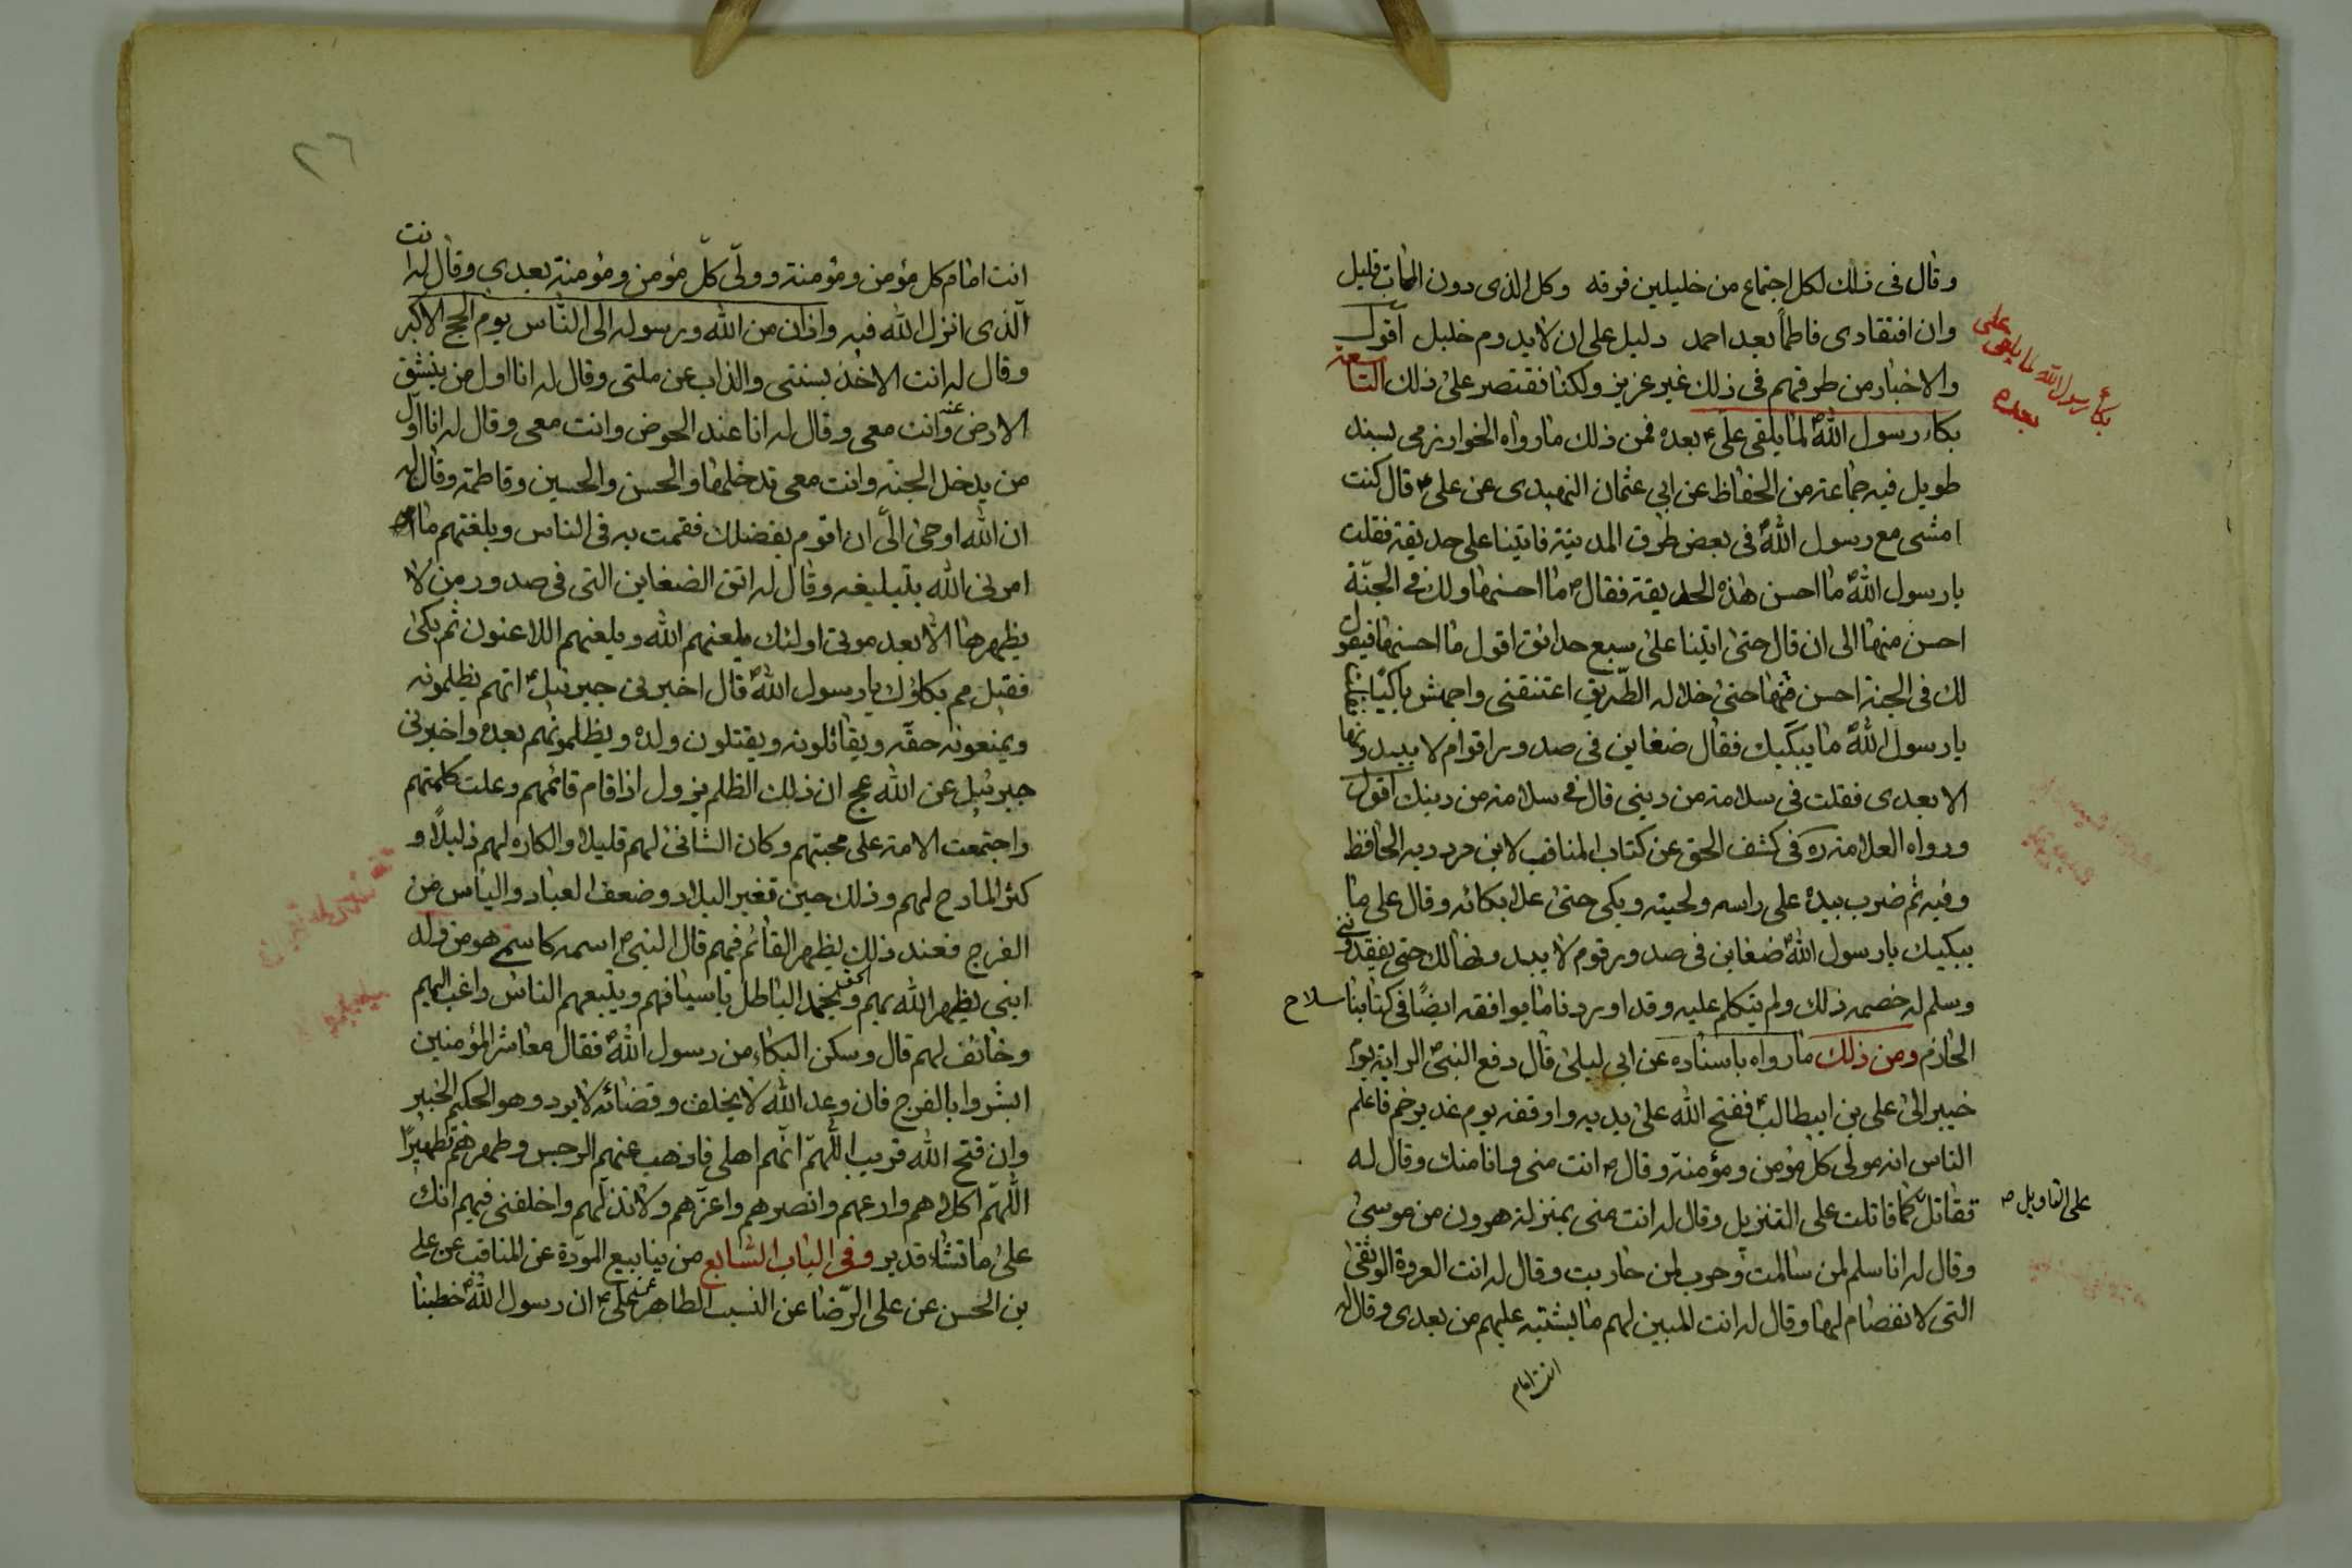 وقال فى ذلك لكل اجتماع من خليلين فرقه وكل الذى دون الممات قليل
وان افتقادى فاطماً بعد احمد دليل على ان لا يدوم خليل اقول
والاخبار من طرقهم فى ذلك غير عزيز ولكنا نقتصر على ذلك التاسعة
بكاء رسول الله لما يلقى على بعده
بكاء رسول اللهؐ لما يلقى علىؑ بعده فمن ذلك ما رواه الخوارزمى بسند
طويل فيه جماعة من الحفاظ عن ابى عثمان النهدى عن علىؑ قال كنت
امشى مع رسول اللهؐ فى بعض طرق المدينة فاتينا على حديقة فقلت
يا رسول اللهؐ ما احسن هذه الحديقة فقالؐ ما احسنها ولك فى الجنة
احسن منها الى ان قال حتى اتينا على سبع حدائق اقول ما احسنها فيقول
لك فى الجنة احسن منها حتى خلا له الطريق اعتنقنى واجهش باكيًا
يا رسول اللهؐ ما يبكيك فقال ضغاين فى صدور اقوام لا يبدونها
الا بعدى فقلت فى سلامة من دينى قال فى سلامة من دينك اقول
ورواه العلامة ره فى كشف الحق عن كتاب المناقب لابن مردويه الحافظ
وفيه ثم ضرب بيده على راسه ولحيته وبكى حتى علا بكائه وقال على ما
يبكيك يا رسول اللهؐ ضغاين فى صدور قوم لا يبدونها لك حتى يفقدونى
وسلم له خصمه ذلك ولم يتكلم عليه وقد اوردنا ما يوافقه ايضًا فى كتابنا سلاح
الحازم ومن ذلك ما رواه باسناده عن ابى ليلى قال دفع النبىؐ الراية يوم
خيبر الى على بن ابيطالبؑ ففتح الله على يديه واوقفه يوم غدير خم فاعلم
الناس انه مولى كل مؤمن ومؤمنة وقالؐ انت منى وانا منك وقال له
تقاتل كما قاتلت على التنزيل وقال له انت منى بمنزلة هرون من موسى
على التاويل ص
وقال له انا سلم لمن سالمت وحرب لمن حاربت وقال له انت العروة الوثقى
التى لا انفصام لها وقال له انت المبين لهم ما يشتبه عليهم من بعدى وقال له
انت امام
٢٦
انت امام كل مؤمن ومؤمنة وولىّ كلّ مؤمن ومؤمنة بعدى وقال له انت
الّذى انزل الله فيه واذان من الله ورسوله الى النّاس يوم الحج الاكبر
وقال له انت الاخذ بسنتى والذاب عن ملتى وقال له انا اول من ينشق
الارض عنه وانت معى وقال له انا عند الحوض وانت معى وقال له انا اول
من يدخل الجنة وانت معى تدخلها والحسن والحسين وفاطمة وقال له
ان الله اوحى الىّ ان اقوم بفضلك فقمت به فى الناس وبلغتهم ما
امرنى الله بتبليغه وقال له اتق الضغاين التى فى صدور من لا
يظهرها الا بعد موتى اولئك يلعنهم الله ويلعنهم اللاعنون ثم بكى
فقيل مم بكاؤك يا رسول اللهؐ قال اخبرنى جبرئيلؑ انهم يظلمونه
ويمنعونه حقّه ويقاتلونه ويقتلون ولده ويظلمونهم بعده واخبرنى
جبرئيل عن الله عج ان ذلك الظلم يزول اذا قام قائمهم وعلت كلمتهم
واجتمعت الامة على محبتهم وكان الشانى لهم قليلا والكاره لهم ذليلاً و
كثر المادح لهم وذلك حين تغير البلاد وضعف العباد والياس من
الفرج فعند ذلك يظهر القائم فيهم قال النبىؐ اسمه كاسمى هو من ولد
ابنى يظهر الله الحق بهم ويخمد الباطل باسيافهم ويتبعهم الناس راغب اليهم
وخائف لهم قال وسكن البكاء من رسول اللهؐ فقال معاشر المؤمنين
ابشروا بالفرج فان وعد الله لا يخلف وقضائه لا يرد وهو الحكيم الخبير
وان فتح الله قريب اللّهمّ انّهم اهلى فاذهب عنهم الرجس وطهرهم تطهيرًا
اللّهمّ اكلاهم وارعهم وانصرهم واعزّهم ولا تذلّهم واخلفنى فيهم انك
على ما تشاء قدير وفى الباب السابع من ينابيع المودّة عن المناقب عن على
بن الحسن عن على الرّضا عن النسب الطاهر عن علىؑ ان رسول اللهؐ خطبنا